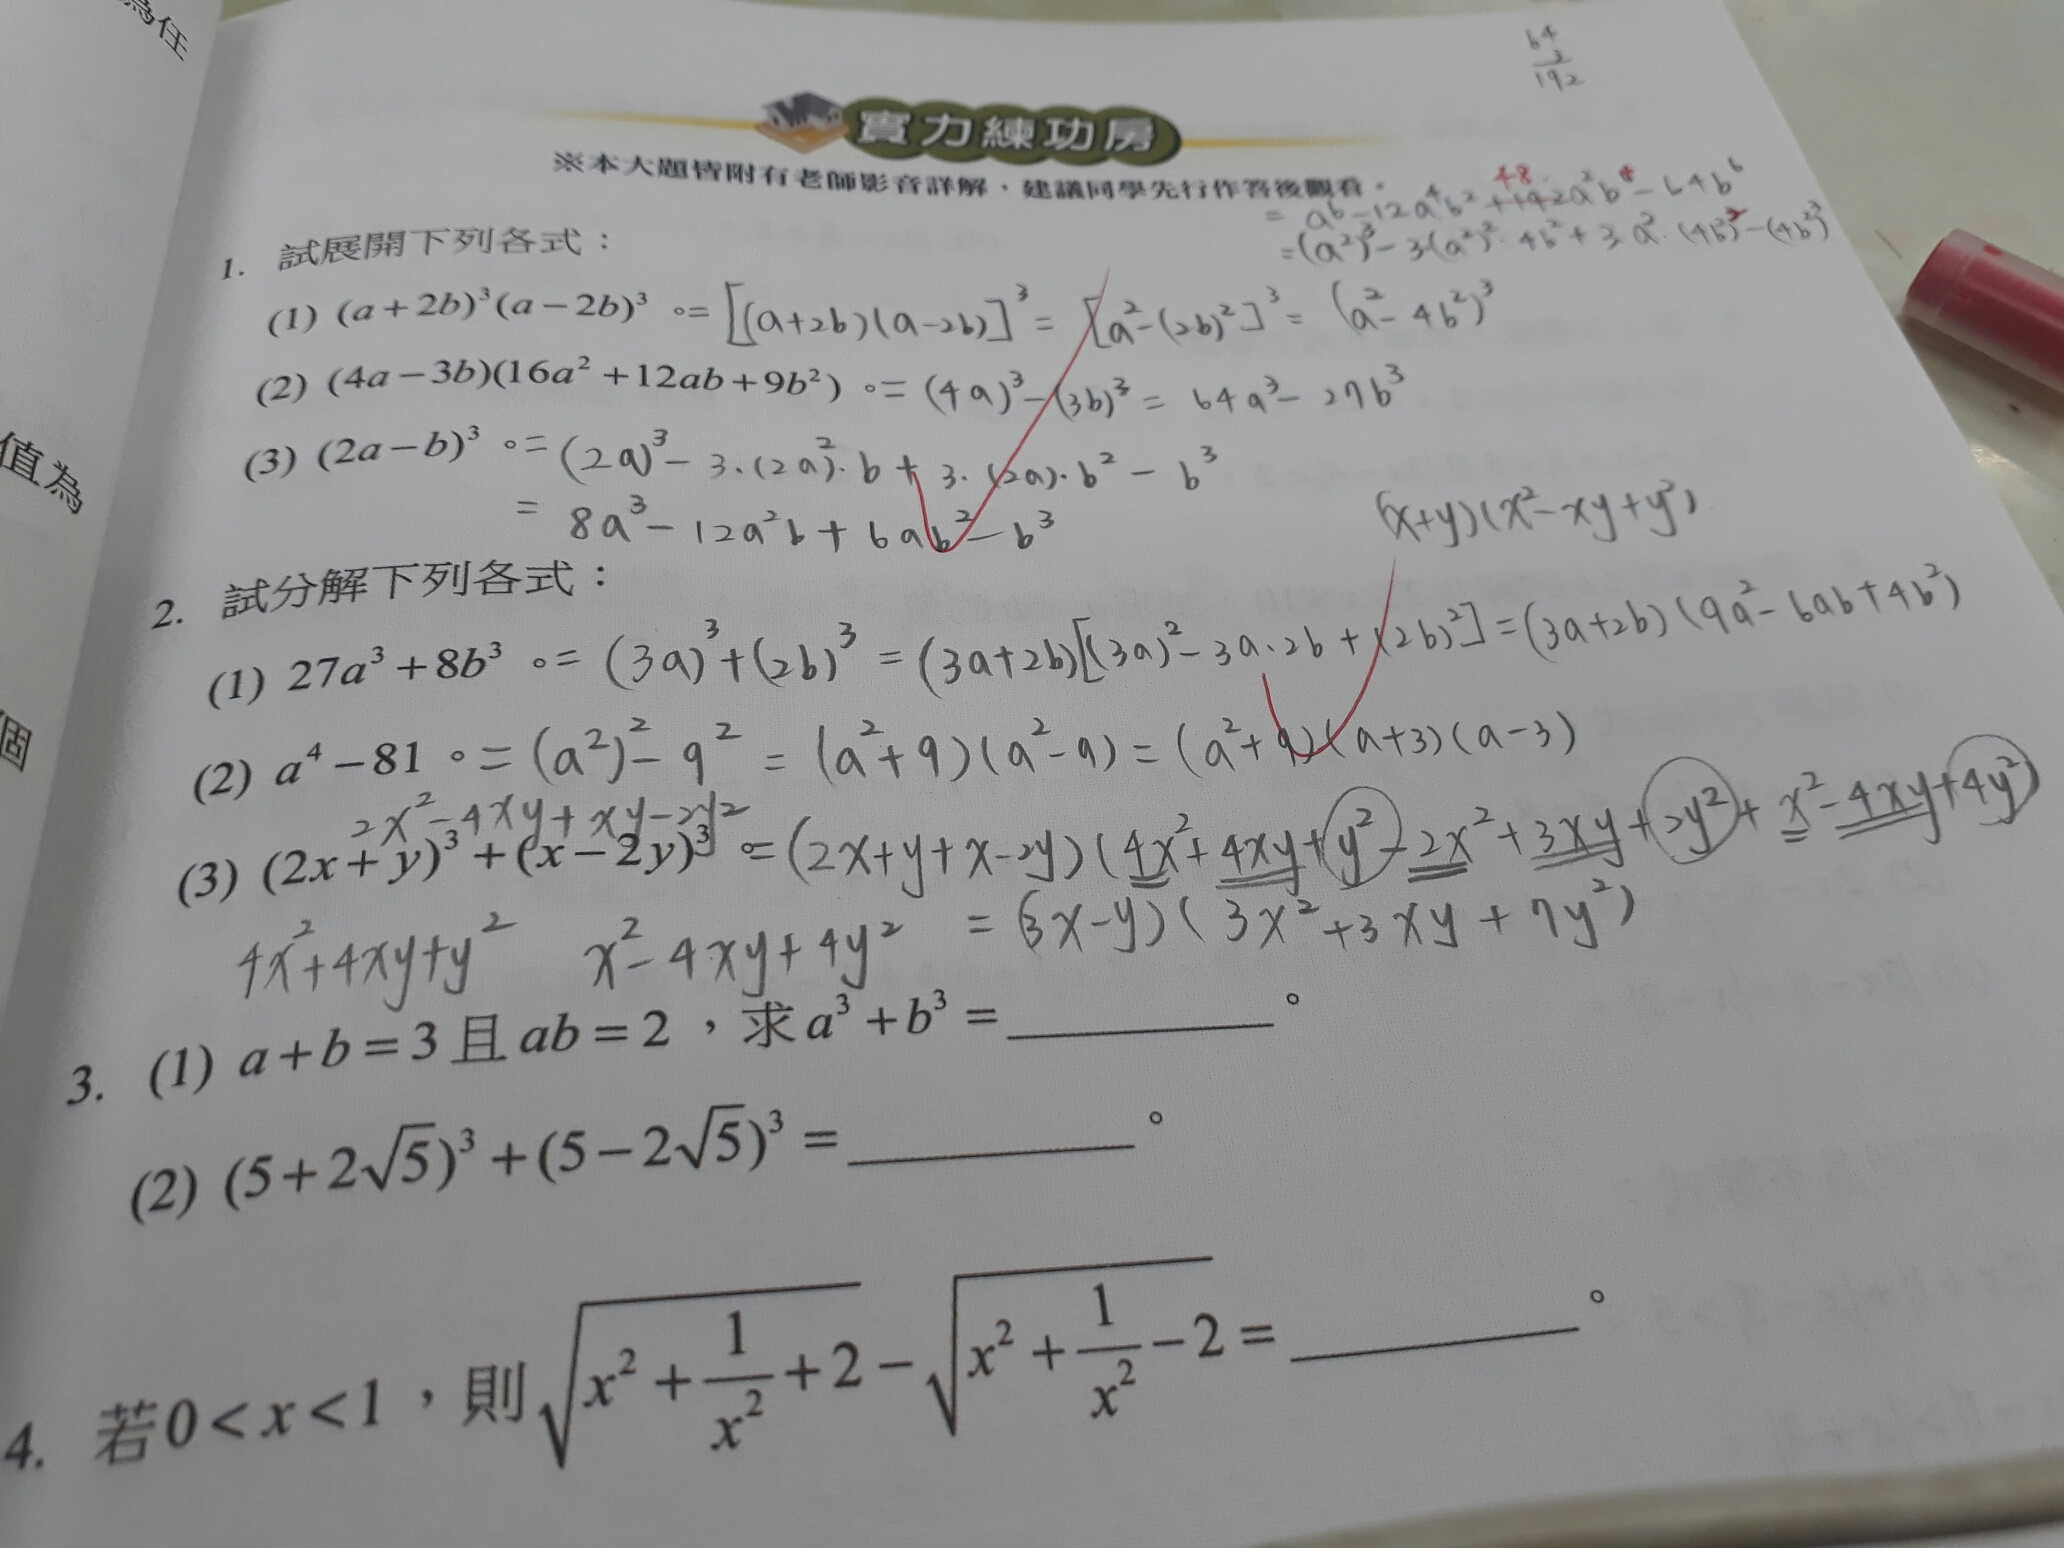 為任
值為
個
64
3
192
實力練功房
※本大題皆附有老師影音詳解，建議同學先行作答後觀看。
48 4
= a⁶-12a⁴b²+192a²b⁴-64b⁶
=(a²)³-3(a²)²·4b²+3a²·(4b²)²-(4b²)³
1. 試展開下列各式：
(1) (a+2b)³(a-2b)³。=[(a+2b)(a-2b)]³=[a²-(2b)²]³=(a²-4b²)³
(2) (4a-3b)(16a²+12ab+9b²)。=(4a)³-(3b)³=64a³-27b³
(3) (2a-b)³。=(2a)³-3·(2a)²·b+3·(2a)·b²-b³
=8a³-12a²b+6ab²-b³
(x+y)(x²-xy+y²)
2. 試分解下列各式：
(1) 27a³+8b³。=(3a)³+(2b)³=(3a+2b)[(3a)²-3a·2b+(2b)²]=(3a+2b)(9a²-6ab+4b²)
(2) a⁴-81。=(a²)²-9²=(a²+9)(a²-9)=(a²+9)(a+3)(a-3)
2x²-4xy+xy-2y²
(3) (2x+y)³+(x-2y)³。=(2x+y+x-2y)(4x²+4xy+y²-2x²+3xy+2y²+x²-4xy+4y²)
4x²+4xy+y² x²-4xy+4y² =(3x-y)(3x²+3xy+7y²)
3. (1) a+b=3且ab=2，求a³+b³=________。
(2) (5+2√5)³+(5-2√5)³=________。
4. 若0<x<1，則√(x²+1/x²+2)-√(x²+1/x²-2)=________。